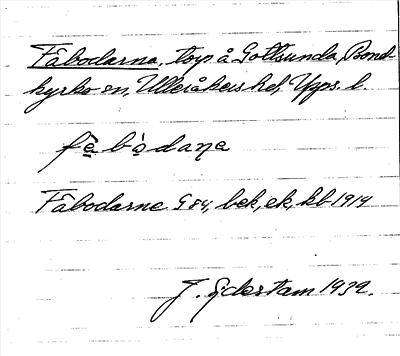 Fäbodarna, torp å Gottsunda, Bond-
kyrko sn, Ulleråkers hd, Upps. l.
fe bodaṇa
Fäbodarne G 84, bek, ek, kb 1919
J. Sjdestam 1932.